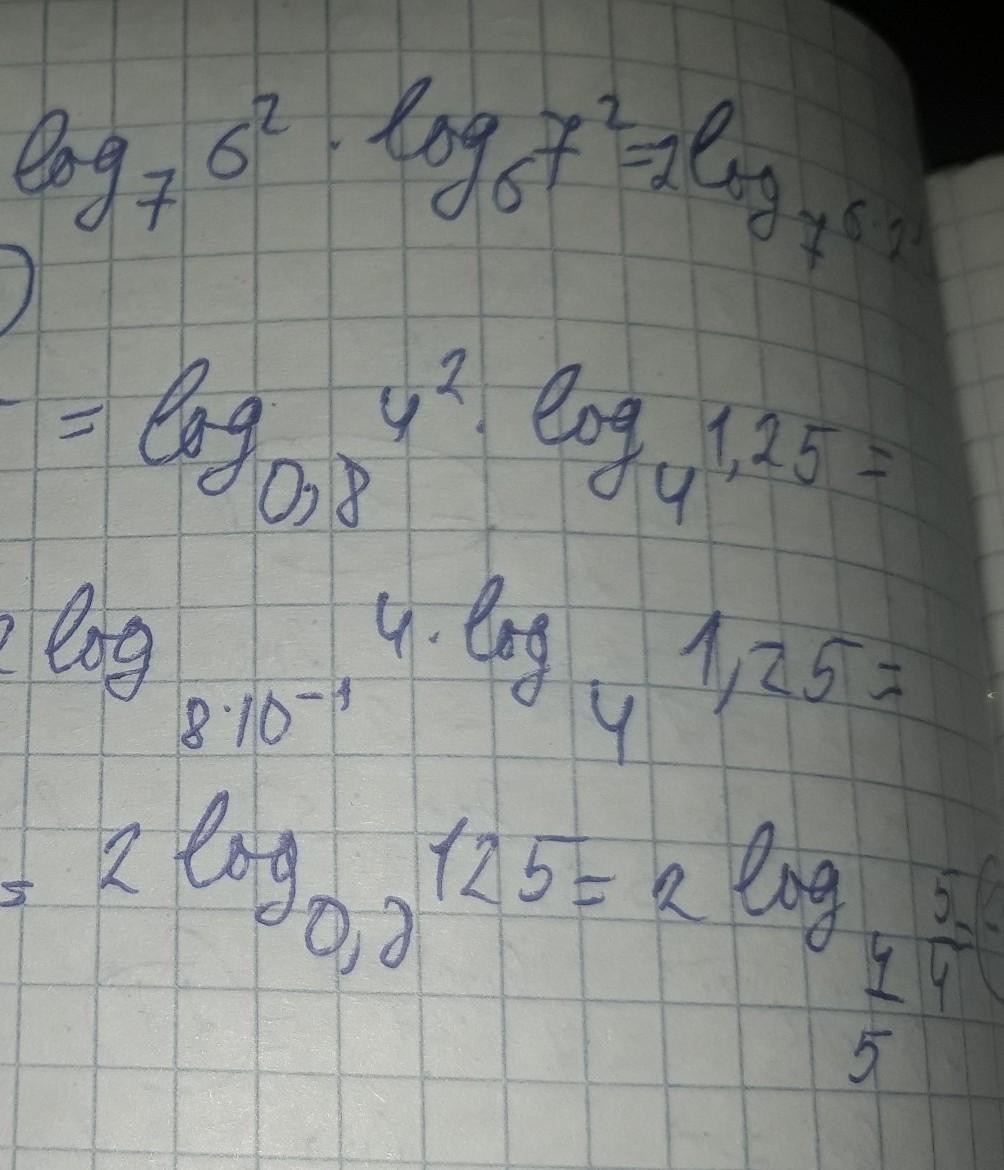 log₇ 6² · log₆ 7² = 2 log₇ 6 · 2
= log₀,₈ 4² · log₄ 1,25 =
2 log₈.₁₀⁻¹ 4 · log₄ 1,25 =
= 2 log₀,₈ 125 = 2 log_4/5 5/4 =